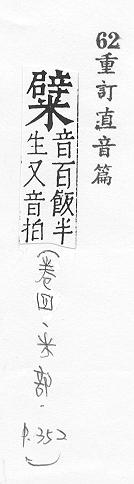 62重訂直音篇
糪
音百飯半
生又音拍
(卷四·米部·
P.352)